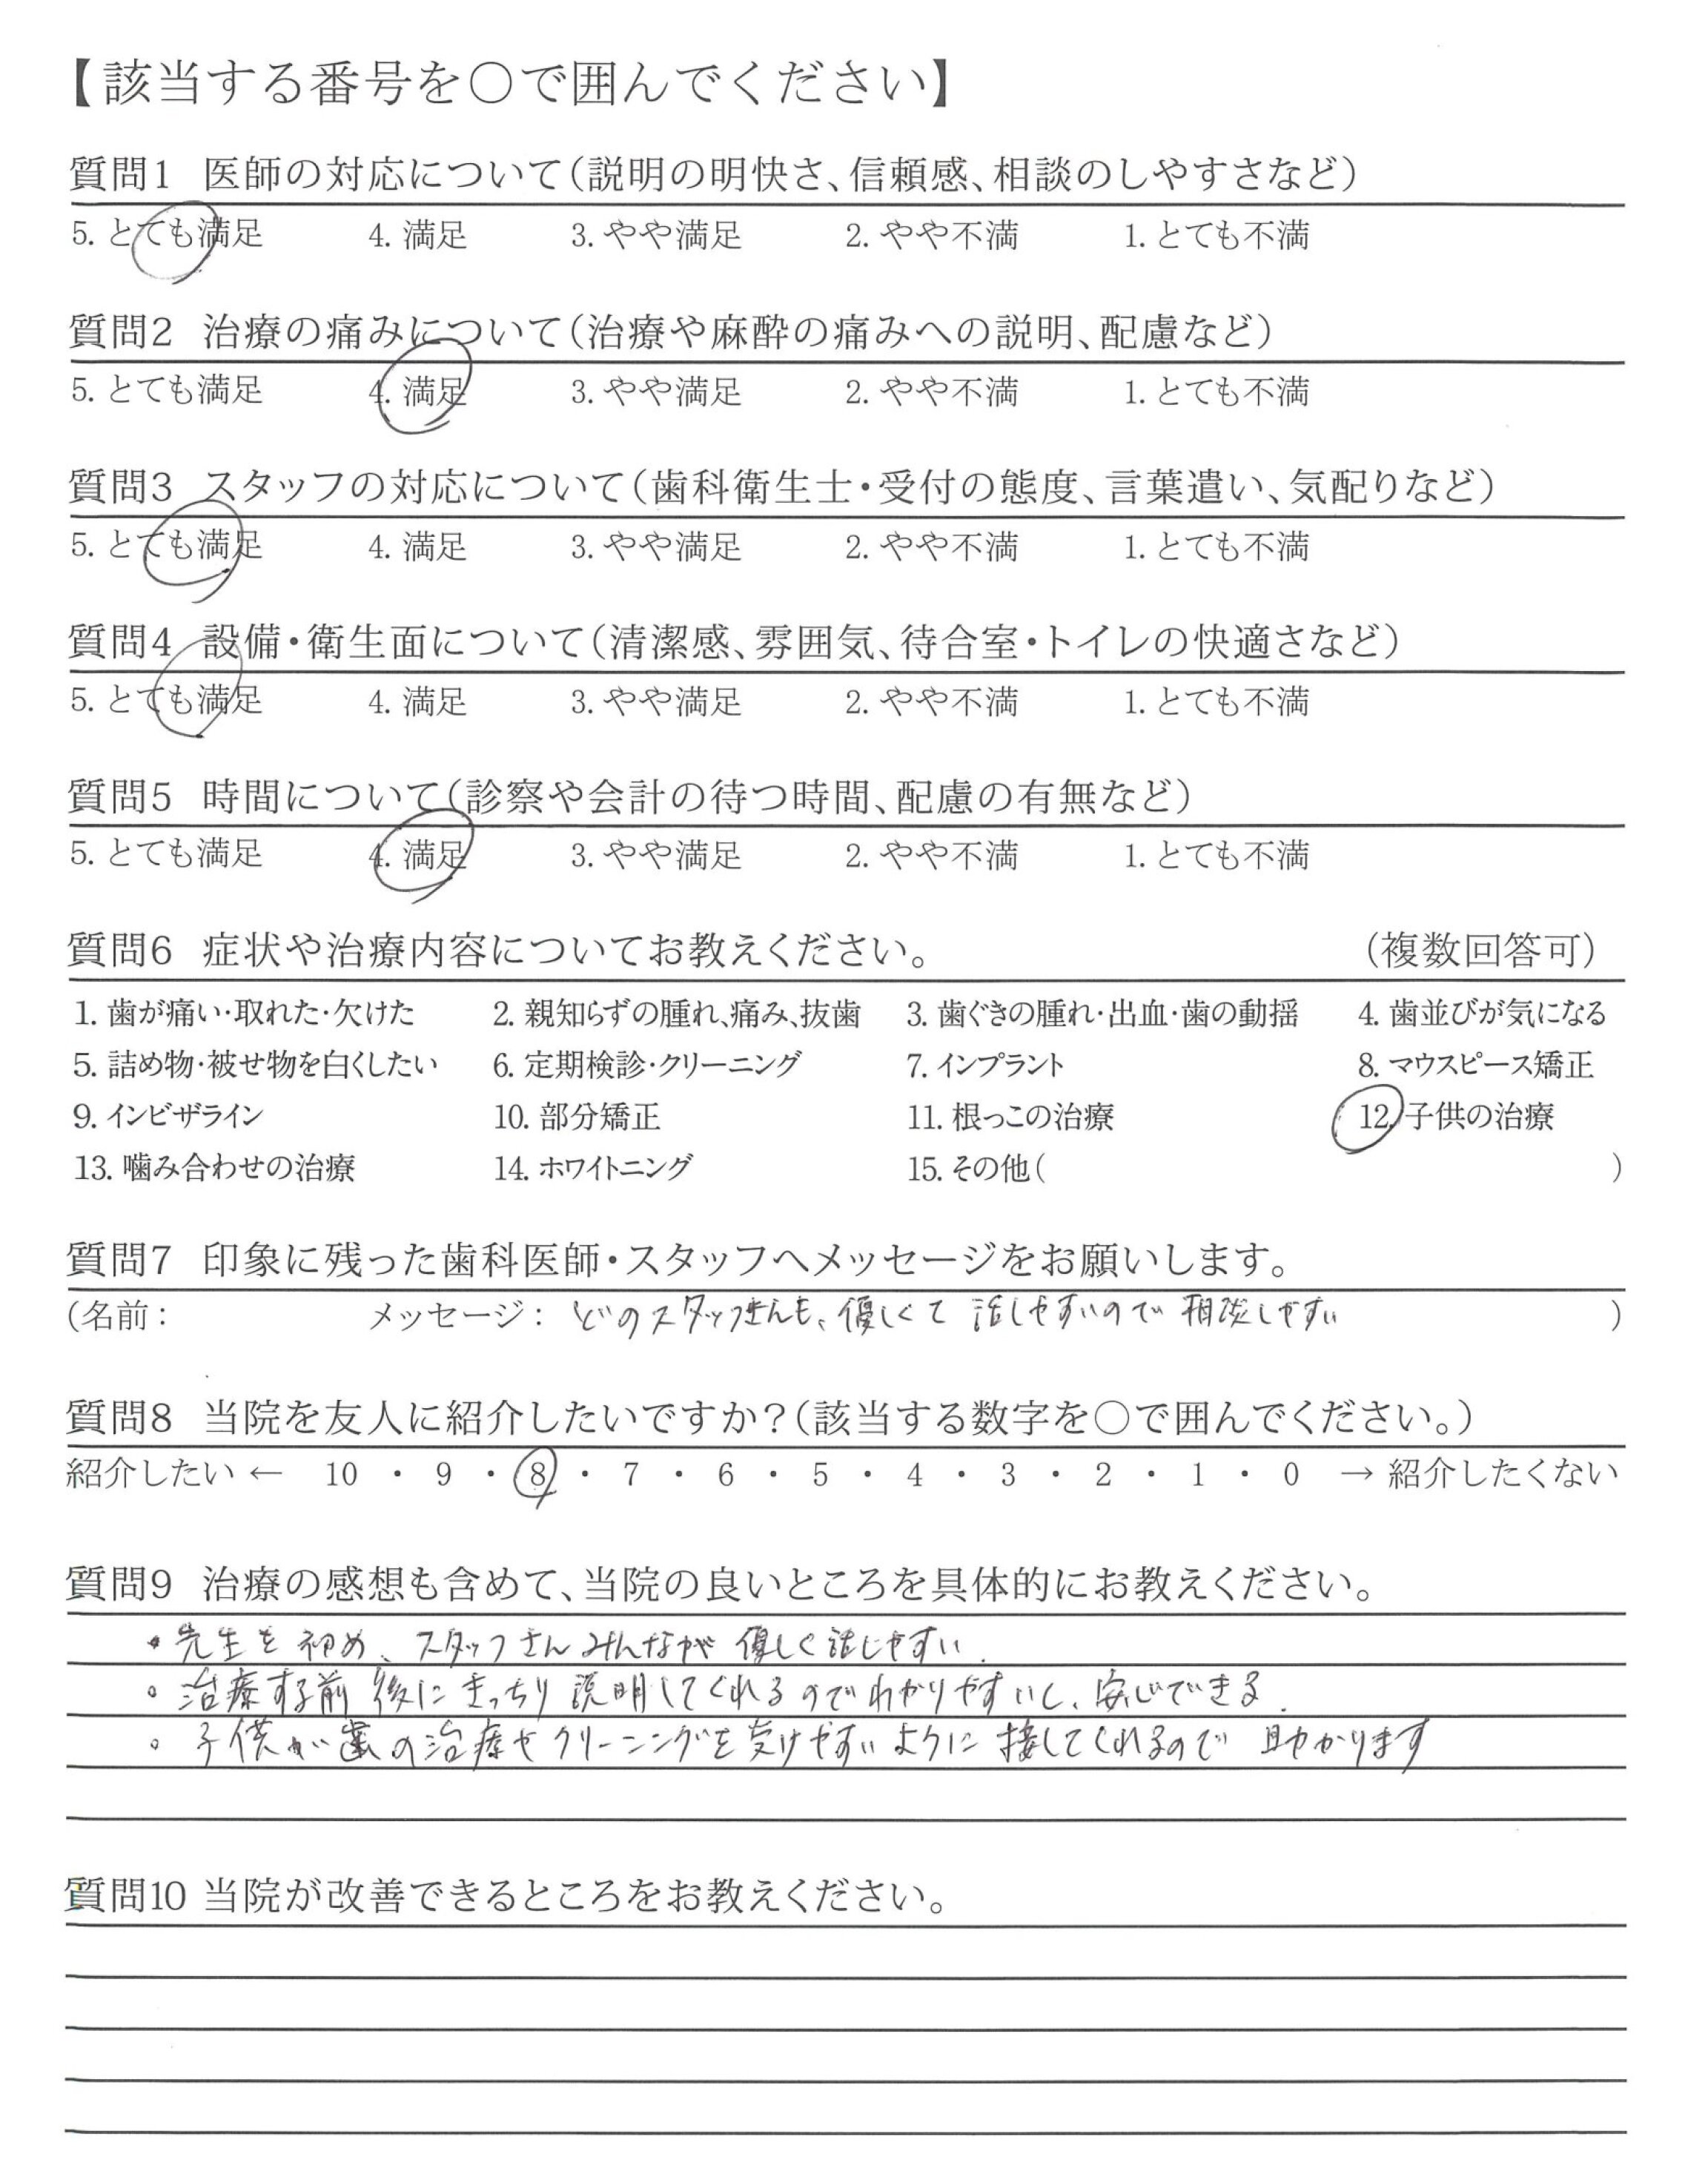 【該当する番号を○で囲んでください】
質問1 医師の対応について(説明の明快さ、信頼感、相談のしやすさなど)
5. とても満足 4. 満足 3. やや満足 2. やや不満 1. とても不満
質問2 治療の痛みについて(治療や麻酔の痛みへの説明、配慮など)
5. とても満足 4. 満足 3. やや満足 2. やや不満 1. とても不満
質問3 スタッフの対応について(歯科衛生士・受付の態度、言葉遣い、気配りなど)
5. とても満足 4. 満足 3. やや満足 2. やや不満 1. とても不満
質問4 設備・衛生面について(清潔感、雰囲気、待合室・トイレの快適さなど)
5. とても満足 4. 満足 3. やや満足 2. やや不満 1. とても不満
質問5 時間について(診察や会計の待つ時間、配慮の有無など)
5. とても満足 4. 満足 3. やや満足 2. やや不満 1. とても不満
質問6 症状や治療内容についてお教えください。 (複数回答可)
1. 歯が痛い・取れた・欠けた 2. 親知らずの腫れ、痛み、抜歯 3. 歯ぐきの腫れ・出血・歯の動揺 4. 歯並びが気になる
5. 詰め物・被せ物を白くしたい 6. 定期検診・クリーニング 7. インプラント 8. マウスピース矯正
9. インビザライン 10. 部分矯正 11. 根っこの治療 12. 子供の治療
13. 噛み合わせの治療 14. ホワイトニング 15. その他( )
質問7 印象に残った歯科医師・スタッフへメッセージをお願いします。
(名前: メッセージ: どのスタッフさんも、優しくて 話しやすいので 相談しやすい )
質問8 当院を友人に紹介したいですか?(該当する数字を○で囲んでください。)
紹介したい ← 10 ・ 9 ・ 8 ・ 7 ・ 6 ・ 5 ・ 4 ・ 3 ・ 2 ・ 1 ・ 0 → 紹介したくない
質問9 治療の感想も含めて、当院の良いところを具体的にお教えください。
・先生を初め、スタッフさんみんなが 優しく話しやすい.
。治療する前 後にきっちり説明してくれるのでわかりやすいし、安心できる.
。子供が歯の治療やクリーニングを受けやすいように 接してくれるので 助かります
質問10 当院が改善できるところをお教えください。